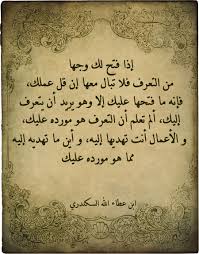 إذا فتح لك وجها
من التعرف فلا تبال معها إن قل عملك،
فإنه ما فتحها عليك إلا وهو يريد أن يتعرف
إليك، ألم تعلم أن التعرف هو مورده عليك،
و الأعمال أنت تهديها إليه، و أين ما تهديه إليه
مما هو مورده عليك
ابن عطاء الله السكندري